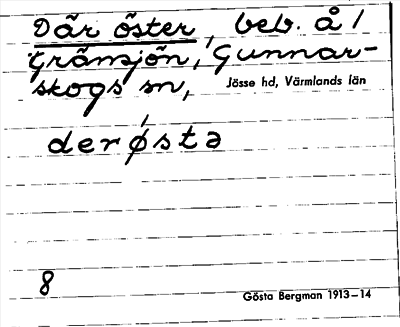 Där öster, beb. å 1
Gränsjön, Gunnar-
skogs sn,
Jösse hd, Värmlands län
derǿsta
8
Gösta Bergman 1913–14